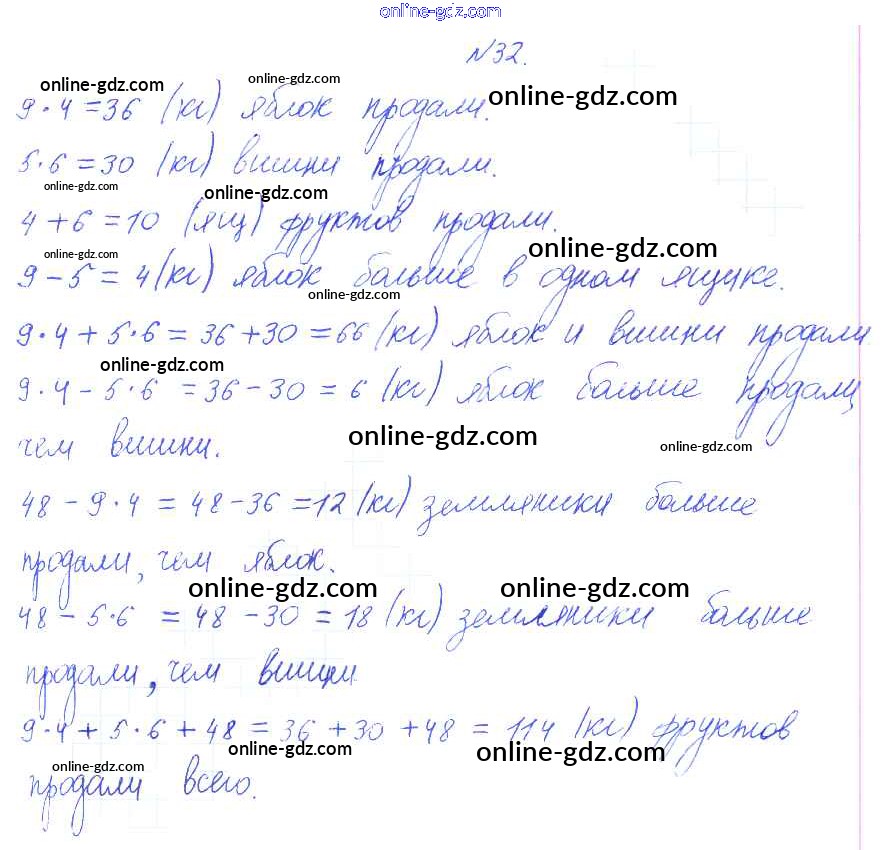 online-gdz.com
№32.
online-gdz.com online-gdz.com online-gdz.com
9·4=36 (кг) яблок продали.
5·6=30 (кг) вишни продали.
online-gdz.com online-gdz.com
4+6=10 (ящ) фруктов продали.
online-gdz.com online-gdz.com
9-5=4(кг) яблок больше в одном ящике.
online-gdz.com
9·4+5·6=36+30=66(кг) яблок и вишни продали
online-gdz.com
9·4-5·6=36-30=6(кг) яблок больше продали,
чем вишни.
online-gdz.com online-gdz.com
48-9·4=48-36=12(кг) земляники больше
продали, чем яблок.
online-gdz.com online-gdz.com
48-5·6=48-30=18(кг) земляники больше
продали, чем вишни
9·4+5·6+48=36+30+48=114 (кг) фруктов
online-gdz.com online-gdz.com online-gdz.com
продали всего.